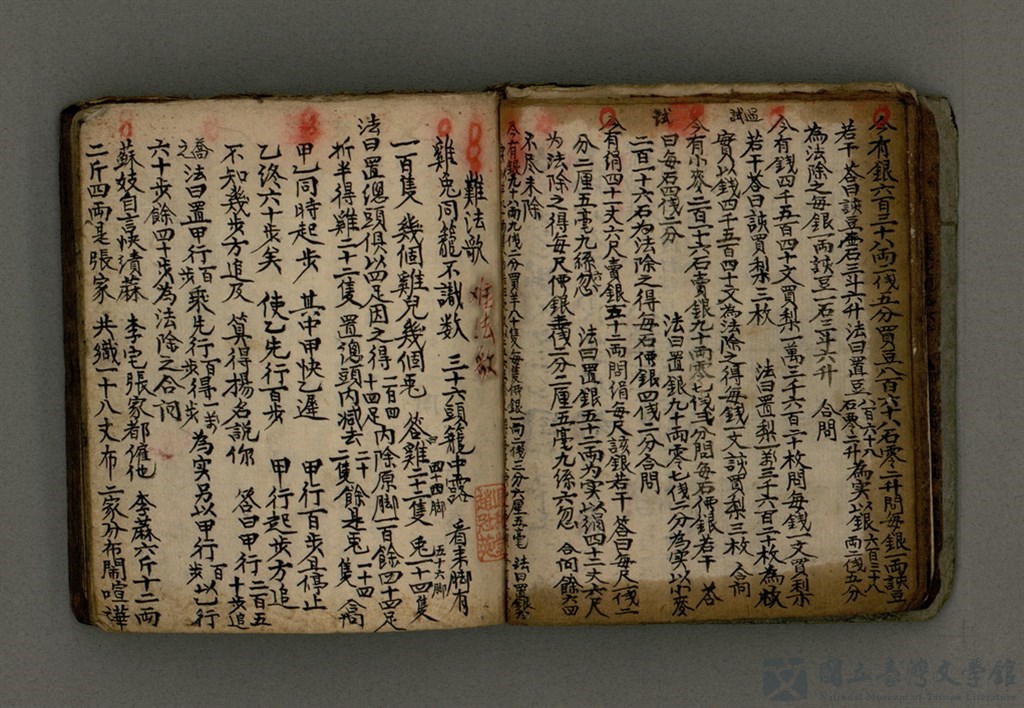 今有銀六百三十八両一伐五分買豆八百六十八石零二升問每銀一両談豆
若干 答曰談豆壹石三斗六升 法曰置豆八百六十八石零二升為實以銀六百三十八両一伐五分
為法除之每銀一両談豆一石三斗六升 合問
今有錢四千五百四十文買梨一萬三千六百二十枚問每錢一文買梨
若干 答曰談買梨三枚 法曰置梨一萬三千六百二十枚為
實以錢四千五百四十文為法除之得每錢一文談買梨三枚 合問
今有小麥二百一十六石賣銀九十両零七伐二分問每石價銀若干 答
曰每石四伐二分 法曰置銀九十両零七伐二分為實以小麥
二百一十六石為法除之得每石價銀四伐二分合問
今有絹四十二丈六尺賣銀五十二両問絹每尺該銀若干 答曰每尺一伐二
分二厘五毫九絲忽 法曰置銀五十二両為實以絹四十二丈六尺
為法除之得每尺價銀壹伐二分二厘五毫九絲六忽 合問餘
不尽未除
難法歌
雞兔同籠不識数 三十六頭籠中露 看来脚有
一百隻 幾個雞兒幾個兔 答雞二十二隻四十四脚 兔一十四隻五十六脚
法曰置總頭俱以四足因之得一百四十四足內除原脚一百餘四十四足
折半得雞二十二隻 置總頭內減去二十二隻餘是兔一十四隻 合問
甲乙同時起步 其中甲快乙遲 甲行百步且停止
乙終六十步矣 使乙先行百步 甲行起步方追
不知幾步方追及 算得揚名說你 答曰甲行二百五十步追
之 法曰置甲行百步乘先行百步得一萬步為实另以甲行百步以乙行
六十步餘四十步為法除之合問
蘇妓自言快漬蔴 李宅張家都催他 李蔴六斤十二両
二斤四両是張家 共織一十八丈布 二家分布鬧喧嘩
國立臺灣文學館
National Museum of Taiwan Literature